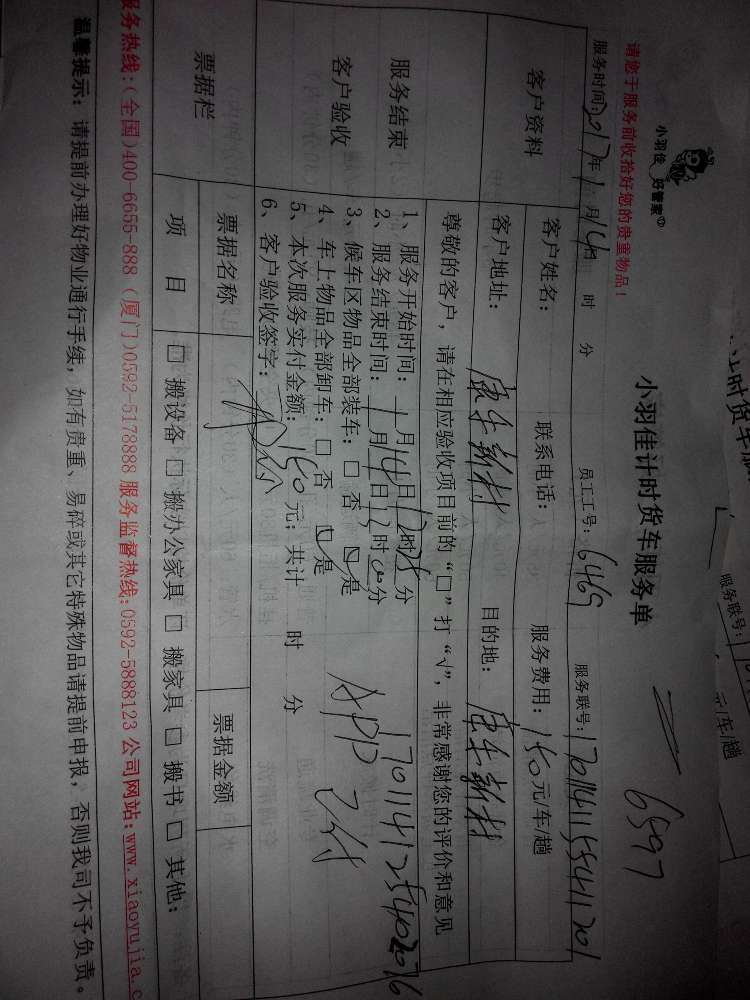 小羽佳 好管家
小羽佳计时货车服务单
6597
请您于服务前收拾好您的贵重物品！
服务时间:2017年1月14日 时 分 员工工号:6469 服务联号:
客户资料
客户姓名: 联系电话: 服务费用:150元/车/趟
客户地址: 目的地:
尊敬的客户，请在相应验收项目前的“□”打“√”，非常感谢您的评价和意见
服务结束
客户验收
1、服务开始时间: 1月14日12时25分
2、服务结束时间: 1月14日13时 分
3、候车区物品全部装车: □ 否 ☑ 是
4、车上物品全部卸车: □ 否 ☑ 是
5、本次服务实付金额: 150元；共计 时 分
6、客户验收签字:
170114125402076
APP 已付
票据栏
票据名称 票据金额
项 目 □ 搬设备 □ 搬办公家具 □ 搬家具 □ 搬书 □ 其他:
服务热线:(全国)400-6655-888 (厦门)0592-5178888 服务监督热线:0592-5888123 公司网站:www.xiaoyujia.c
温馨提示: 请提前办理好物业通行手续，如有贵重、易碎或其它特殊物品请提前申报，否则我司不予负责。
计时货车服
服务联号:
元/车/趟